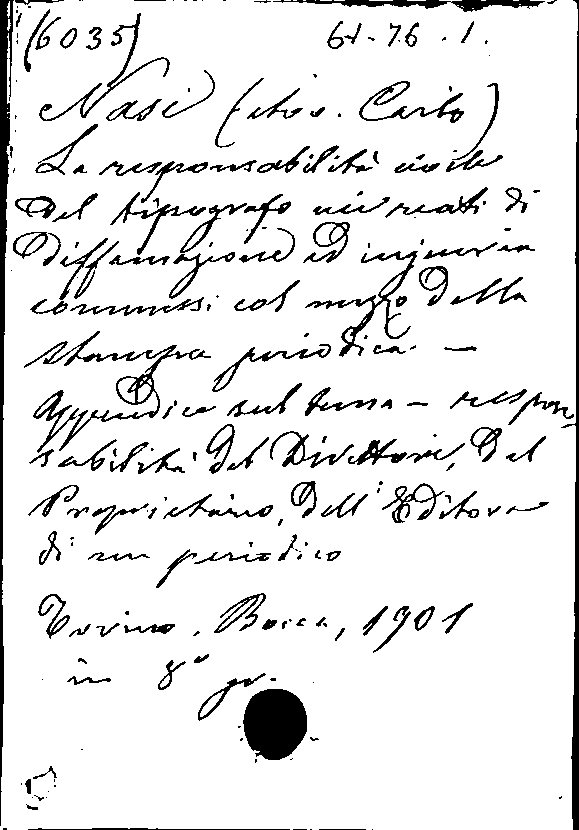 (6035) 61-76.1.
Nasi (avv. Carlo)
La responsabilità civile
del tipografo nei reati di
diffamazione ed ingiuria
commessi col mezzo della
stampa periodica. —
Appendice sul tema — respon-
sabilità del Direttore, del
Proprietario, dell'Editore
di un periodico
Torino, Bocca, 1901
in 8° gr.